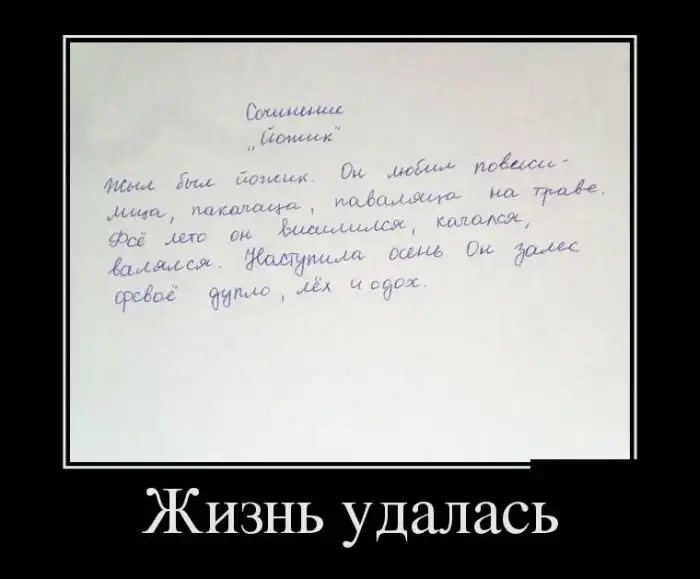 Сочинение
„Йожик"
Жыл был йожик. Он любил повеси-
лица, пакачаца, паваляца на траве.
Фсё лето он висилился, качался,
валялся. Наступила осень. Он залес
фсваё дупло, лёх и одох.
Жизнь удалась